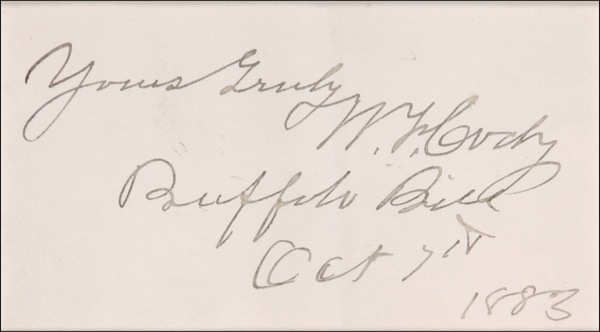 Yours Truly
W. F. Cody
Buffalo Bill
Oct 7th
1883